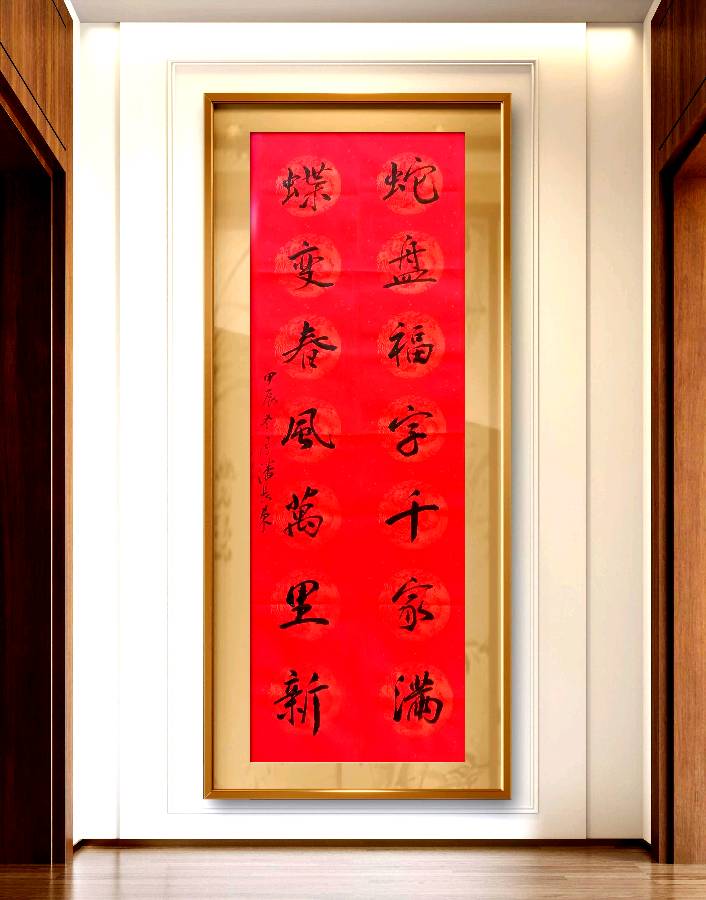 蛇盘福字千家满
蝶变春风萬里新
甲辰冬月潘长东